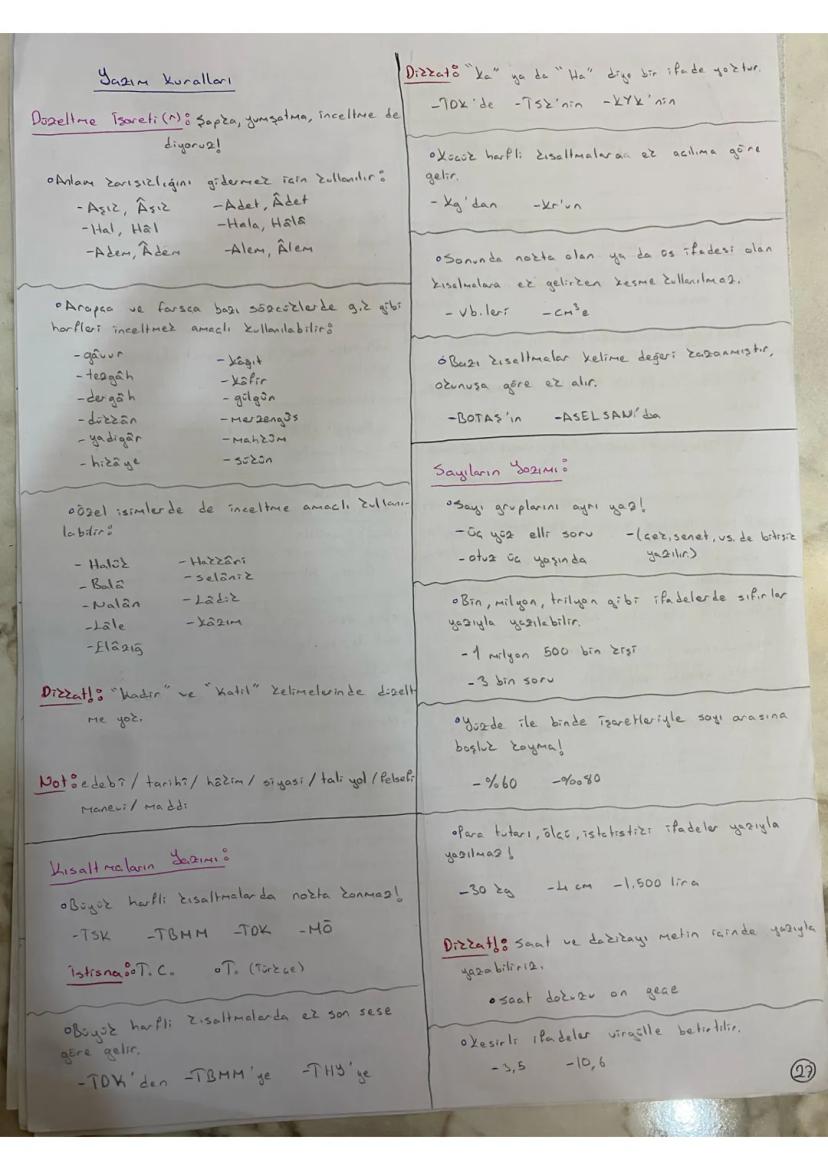 Yazım Kuralları
Düzeltme İşareti (^): Şapka, yumşatma, inceltme de
diyoruz!
• Anlam karışıklığını gidermek için kullanılır:
- Aşık, Âşık - Adet, Âdet
- Hal, Hâl - Hala, Hâlâ
- Adem, Âdem - Alem, Âlem
• Arapça ve farsca bazı sözcüklerde g,k gibi
harfleri inceltmek amaçlı kullanılabilir:
- gâvur - kâğıt
- tezgâh - kâfir
- dergâh - gülgûn
- dükkân - merzengûş
- yadigâr - mahkûm
- hikâye - sükûn
• Özel isimlerde de inceltme amaçlı kullanı-
labilir:
- Halûk - Hakkâri
- Balâ - selânik
- Nalân - Lâdik
- Lâle - kâzım
- Elâzığ
Dikkat!: "Kadir" ve "Katil" kelimelerinde düzelt
me yok.
Not: edebî / tarihî / hâkim / siyasi / tali yol / felsefi
manevi / maddi
Kısaltmaların Yazımı:
• Büyük harfli kısaltmalarda nokta konmaz!
- TSK - TBMM - TDK - MÖ
İstisna: • T.C. • T. (Türkçe)
• Büyük harfli kısaltmalarda ek son sese
göre gelir.
- TDK'den - TBMM'ye - THY'ye
Dikkat: "Ka" ya da "Ha" diye bir ifade yoktur.
- TDK'de - TSK'nin - KYK'nin
• Küçük harfli kısaltmalara ek açılıma göre
gelir.
- Kg'dan - Kr'un
• Sonunda nokta olan ya da üs ifadesi olan
kısalmalara ek gelirken kesme kullanılmaz.
- vb.leri - cm³e
• Bazı kısaltmalar kelime değeri kazanmıştır,
okunuşa göre ek alır.
- BOTAŞ'ın - ASELSAN'da
Sayıların Yazımı:
• Sayı gruplarını ayrı yaz!
- üç yüz elli soru - (çek, senet, vs. de bitişik
- otuz üç yaşında yazılır.)
• Bin, milyon, trilyon gibi ifadelerde sıfırlar
yazıyla yazılabilir.
- 1 milyon 500 bin kişi
- 3 bin soru
• Yüzde ile binde işaretleriyle sayı arasına
boşluk koyma!
- %60 - ‰80
• Para tutarı, ölçü, istatistiki ifadeler yazıyla
yazılmaz!
- 30 kg - 4 cm - 1,500 lira
Dikkat!: Saat ve dakikayı metin içinde yazıyla
yazabiliriz.
• saat dokuzu on geçe
• Kesirli ifadeler virgülle belirtilir.
- 3,5 - 10,6
27